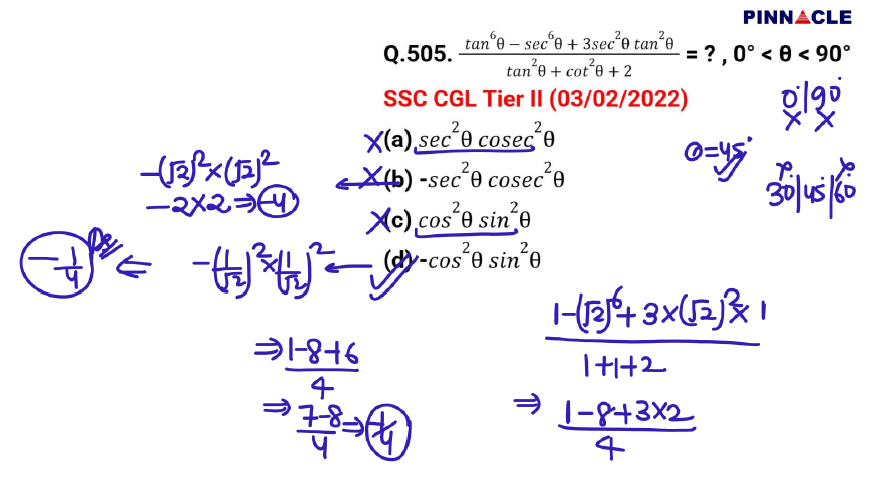 PINNACLE
Q.505. (tan⁶θ − sec⁶θ + 3sec²θ tan²θ) / (tan²θ + cot²θ + 2) = ? , 0° < θ < 90°
SSC CGL Tier II (03/02/2022)
0° | 90°
× ×
θ = 45°
30° | 45° | 60°
×(a) sec²θ cosec²θ
×(b) -sec²θ cosec²θ
×(c) cos²θ sin²θ
(d) -cos²θ sin²θ
-(√2)² × (√2)²
-2×2 ⇒ -4
-1/4 ⇐ -(1/√2)² × (1/√2)² ←
(1-(√2)⁶ + 3×(√2)²×1) / (1+1+2)
⇒ (1-8+3×2) / 4
⇒ (1-8+6) / 4
⇒ (7-8) / 4 ⇒ -1/4